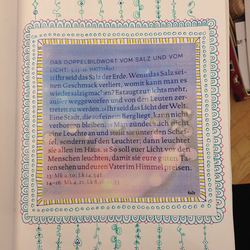 DAS DOPPELBILDWORT VOM SALZ UND VOM
LICHT:
Ihr seid das Salz der Erde. Wenn das Salz sei-
nen Geschmack verliert, womit kann man es
wieder salzig machen? Es taugt zu nichts mehr,
außer weggeworfen und von den Leuten zer-
treten zu werden. Ihr seid das Licht der Welt.
Eine Stadt, die auf einem Berg liegt, kann nicht
verborgen bleiben. Man zündet auch nicht
eine Leuchte an und stellt sie unter den Schef-
fel, sondern auf den Leuchter; dann leuchtet
sie allen im Haus. So soll euer Licht vor den
Menschen leuchten, damit sie eure guten Ta-
ten sehen und euren Vater im Himmel preisen.